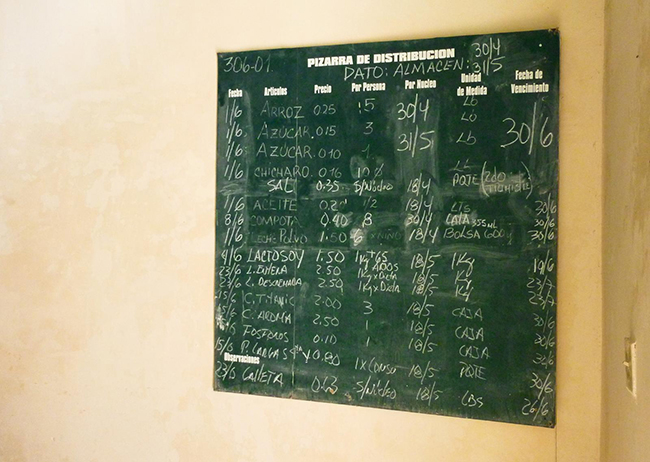 306-01 PIZARRA DE DISTRIBUCION 30/4
DATO: ALMACEN: 31/5
Fecha Articulos Precio Por Persona Por Nucleo Unidad de Medida Fecha de Vencimiento
1/6 ARROZ 025 5 30/4 Lb
1/6 AZUCAR 015 3 31/5 Lb 30/6
1/6 AZUCAR 010
1/6 CHICHARO 016 10
SAL 0.35 S/Nucleo 18/4 PQTE
1/6 ACEITE 1/2 18/4 LTS 30/6
8/6 COMPOTA 0.40 30/4 CAJA 30/6
1/6 LECHE POLVO 1.50 6 18/4 BOLSA 30/6
4/6 LACTOSOY 1.50 18/5 1Kg 19/6
23/6 L. ENTERA 2.50 1Kg x Dieta 18/5 Kg 23/7
23/6 L. DESCREMADA 2.50 1Kg x Dieta 18/5 Kg 23/7
15/6 C. TITANIC 2.00 3 18/5 CAJA 30/6
C. AROMA 2.50 1 18/5 CAJA 30/6
FOSFOROS 0.10 1 18/5 CAJA 30/6
15/6 P. CARGAS 0.80 1 x Consu 18/5 PQTE 30/6
Observaciones
23/6 GALLETA S/Nucleo 18/5 LBS 26/6